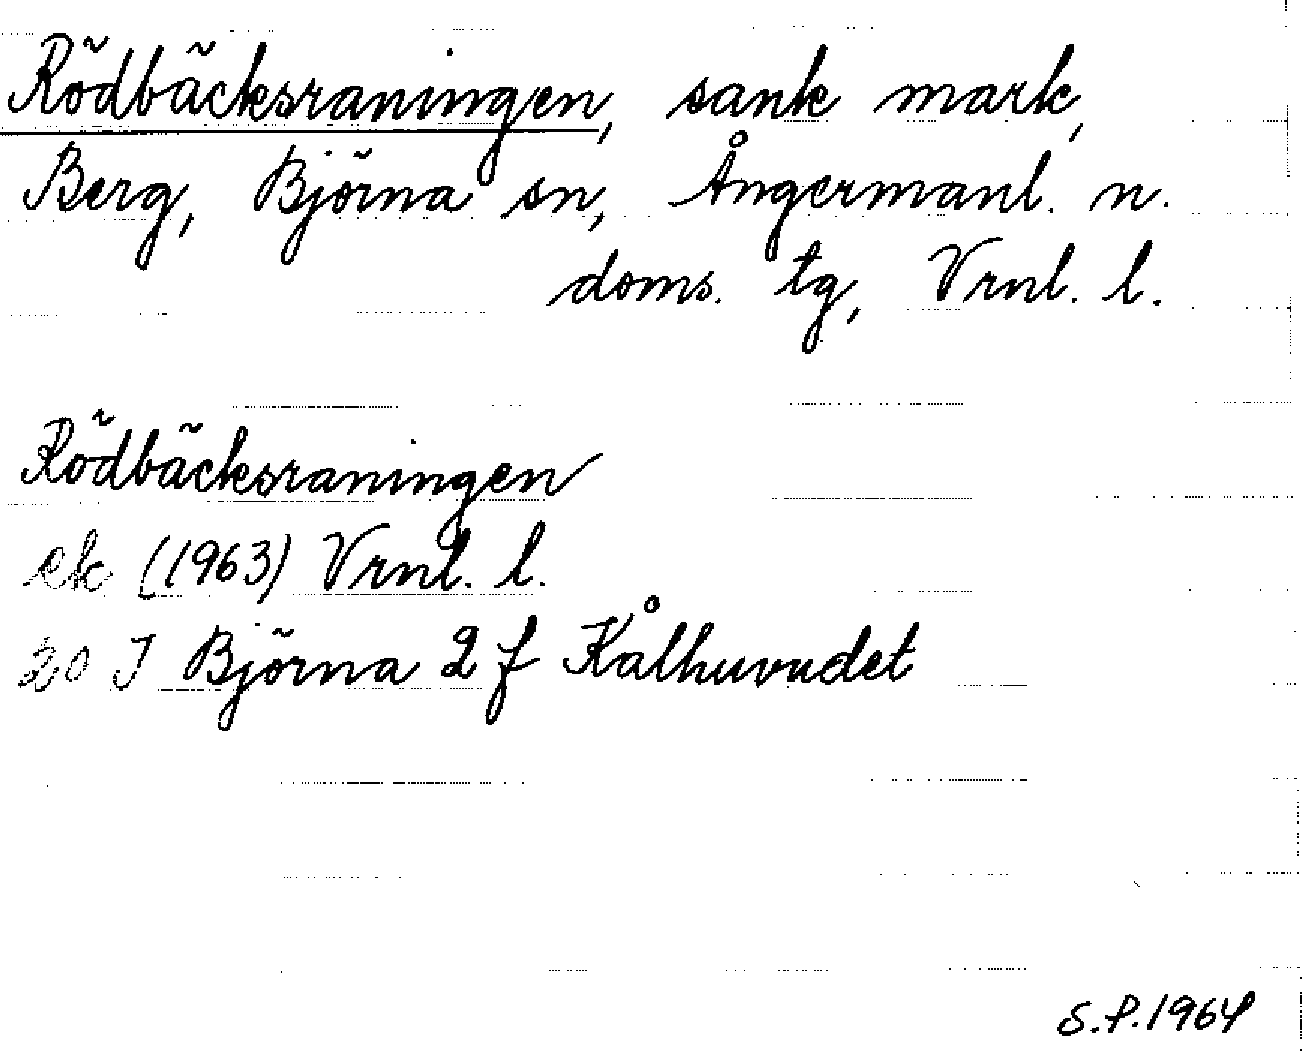 Rödbäcksraningen, sank mark,
Berg, Björna sn, Ångermanl. n.
doms. tg, Vrnl. l.
Rödbäcksraningen
ek (1963) Vrnl. l.
20 I Björna 2 f Kålhuvudet
S.P.1964